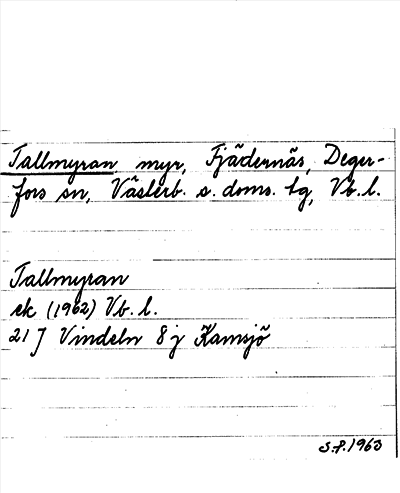 Tallmyran, myr, Fjädernäs, Deger-
fors sn, Västerb. s. doms. tg, Vb. l.
Tallmyran
ek (1962) Vb. l.
21 J Vindeln 8 j Kamsjö
S.P. 1963